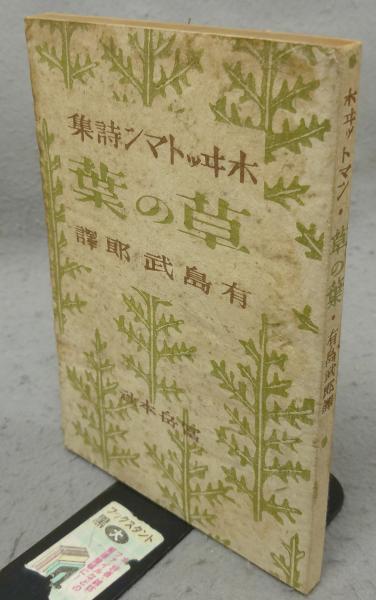 ホヰットマン詩集
草の葉
有島武郎譯
ホヰットマン・草の葉・有島武郎譯
ブックスタンド
黒 大